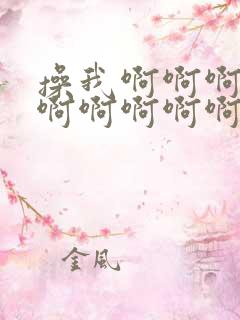 操我啊啊啊
啊啊啊啊啊
金风